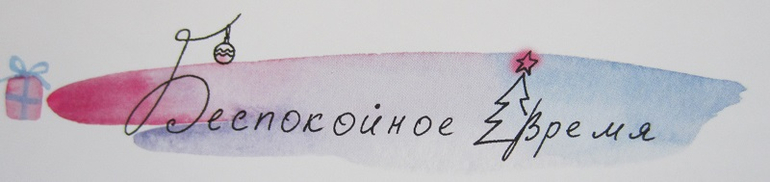 Беспокойное Время